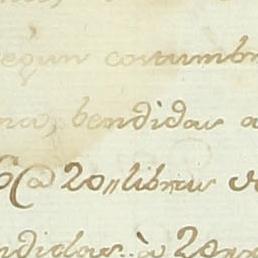 segun costumbr
bendidas a
6@ 20,, libras
ndidas.. à 20